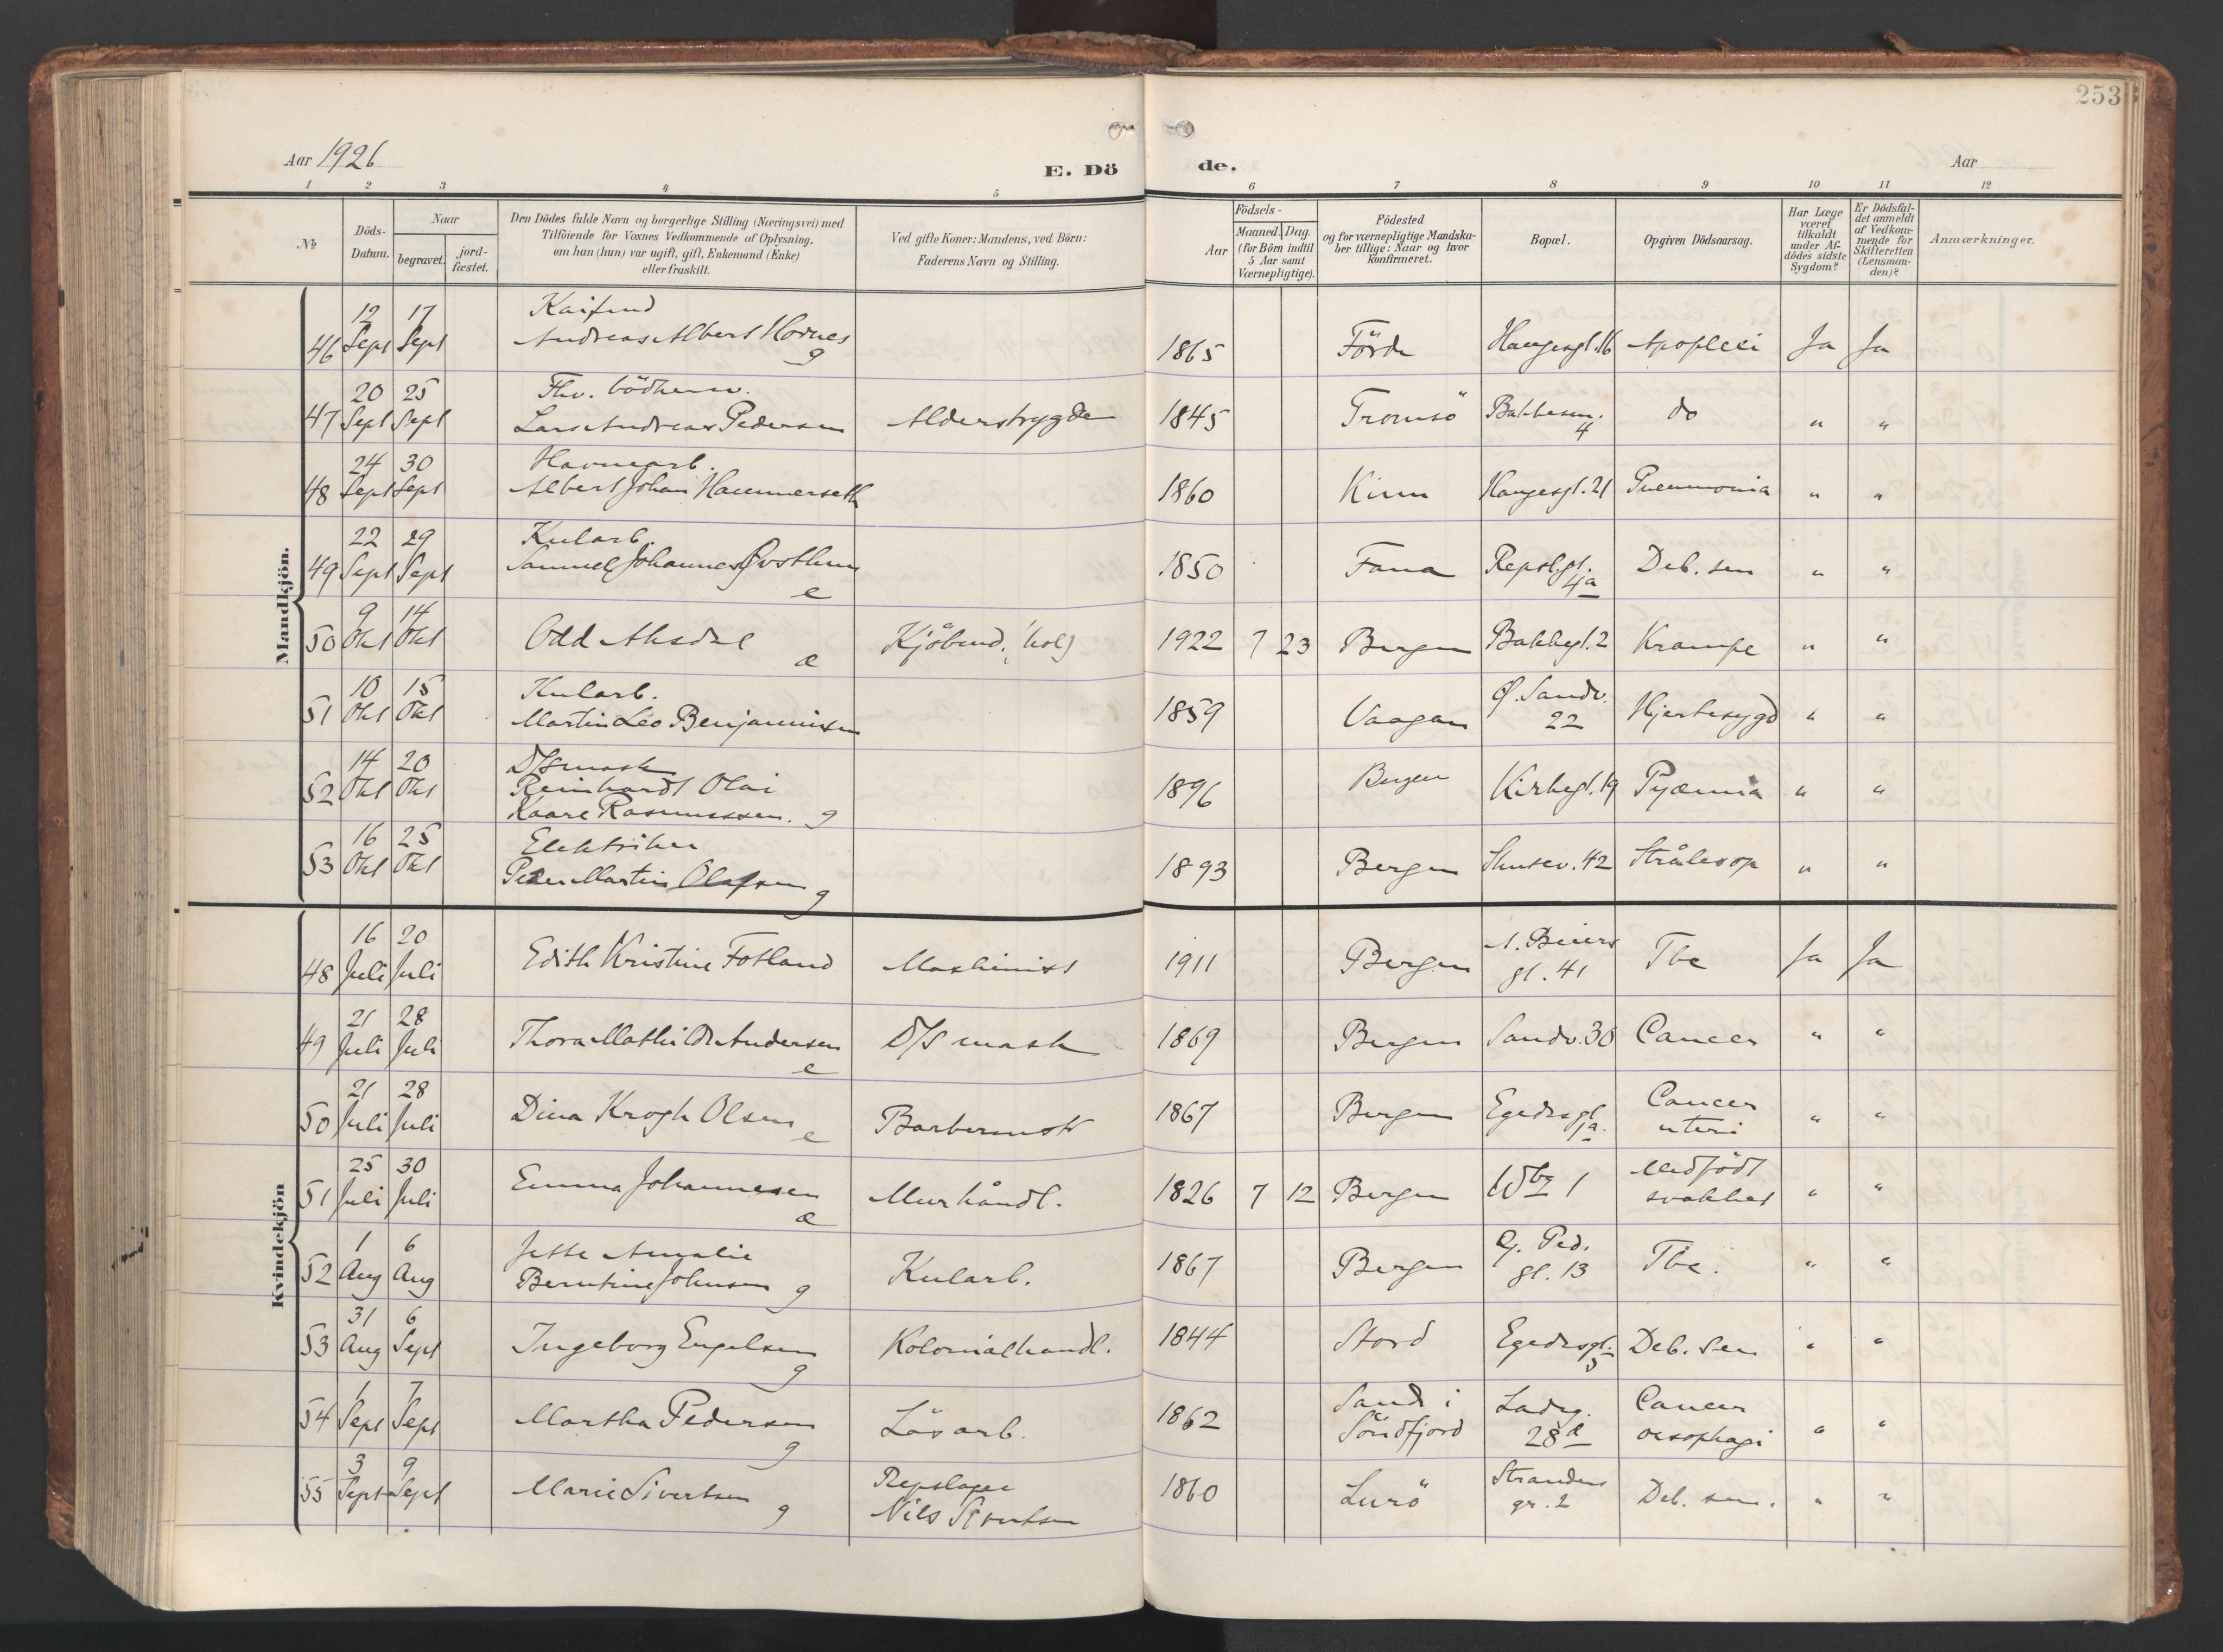 253
Aar 1926
E. Dö de.
Aar
1 2 3 4 5 6 7 8 9 10 11 12
№
Döds-
Datum.
Naar
begravet. jord-
fæstet.
Den Dödes fulde Navn og borgerlige Stilling (Næringsvei) med
Tilföiende for Voxnes Vedkommende af Oplysning,
om han (hun) var ugift, gift, Enkemand (Enke)
eller fraskilt.
Ved gifte Koner: Mandens, ved Börn:
Faderens Navn og Stilling.
Födsels-
Aar
Maaned. Dag.
(for Börn indtil
5 Aar samt
Værnepligtige).
Födested
og for værnepligtige Mandska-
ber tillige: Naar og hvor
konfirmeret.
Bopæl.
Opgiven Dödsaarsag.
Har Læge
været
tilkaldt
under Af-
dödes sidste
Sygdom?
Er Dödsfal-
det anmeldt
af Vedkom-
mende for
Skifteretten
(Lensman-
den)?
Anmærkninger.
Mandkjön.
12 17
46 Sept Sept Andreas Albert Hovnes g 1865 Förde Haugesgt. 16 Apoplexi Ja Ja
20 25 Fhv.
47 Sept Sept Lars Andreas Pedersen Alderstrygde 1845 Tromsö 4 do " "
24 30 Havnearb.
48 Sept Sept Albert Johan Hammerseth 1860 Kinn Haugesgt. 21 Pneumonia " "
22 29 Kularb.
49 Sept Sept Samuel Johannes e 1850 Fana Repsl.gt. 4a Deb. sen " "
9 14
50 Okt Okt Odd Aksdal æ Kjöbmd. 1922 7 23 Bergen Bakkegt. 2 Krampe " "
10 15 Kularb.
51 Okt Okt Martin Leo Benjaminsen 1859 Vaagan Ø. Sandv. 22 Hjertesygd " "
14 20 D/S mask
52 Okt Okt Reinhardt Olai
Kaare Rasmussen. g 1896 Bergen Kirkegt. 19 Pyæmia " "
16 25 Elektriker
53 Okt Okt Peder Martin Olafsen g 1893 Bergen Skutev. 42 Strålesop " "
Kvindekjön
16 20
48 Juli Juli Edith Kristine Fotland Maskinist 1911 Bergen A. Beiers gt. 41 Tbc Ja Ja
21 28
49 Juli Juli Thora Mathilde Andersen e D/S mask 1869 Bergen Sandv. 30 Cancer " "
21 28
50 Juli Juli Dina Krogh Olsen e Barbermstr 1867 Bergen Egedesgt 1a. Cancer uteri " "
25 30
51 Juli Juli Emma Johannesen æ Murhåndl. 1826 7 12 Bergen Medfödt svakhet " "
1 6
52 Aug Aug Jette Amalie
Berntine Johnsen g Kularb. 1867 Bergen Ped. gt. 13 Tbc. " "
31 6
53 Aug Sept Ingeborg Engelsen g Kolonialhandl. 1844 Stord Egedesgt. 5 Deb. sen " "
1 7
54 Sept Sept Martha Pedersen g Lösarb. 1862 Sande i Söndfjord Ladeg. 28d Cancer oesophagi " "
3 9
55 Sept Sept Marie Sivertsen g Repslager
Nils Sivertsen 1860 Lurö Strandens gr. 2 Deb. sen. " "